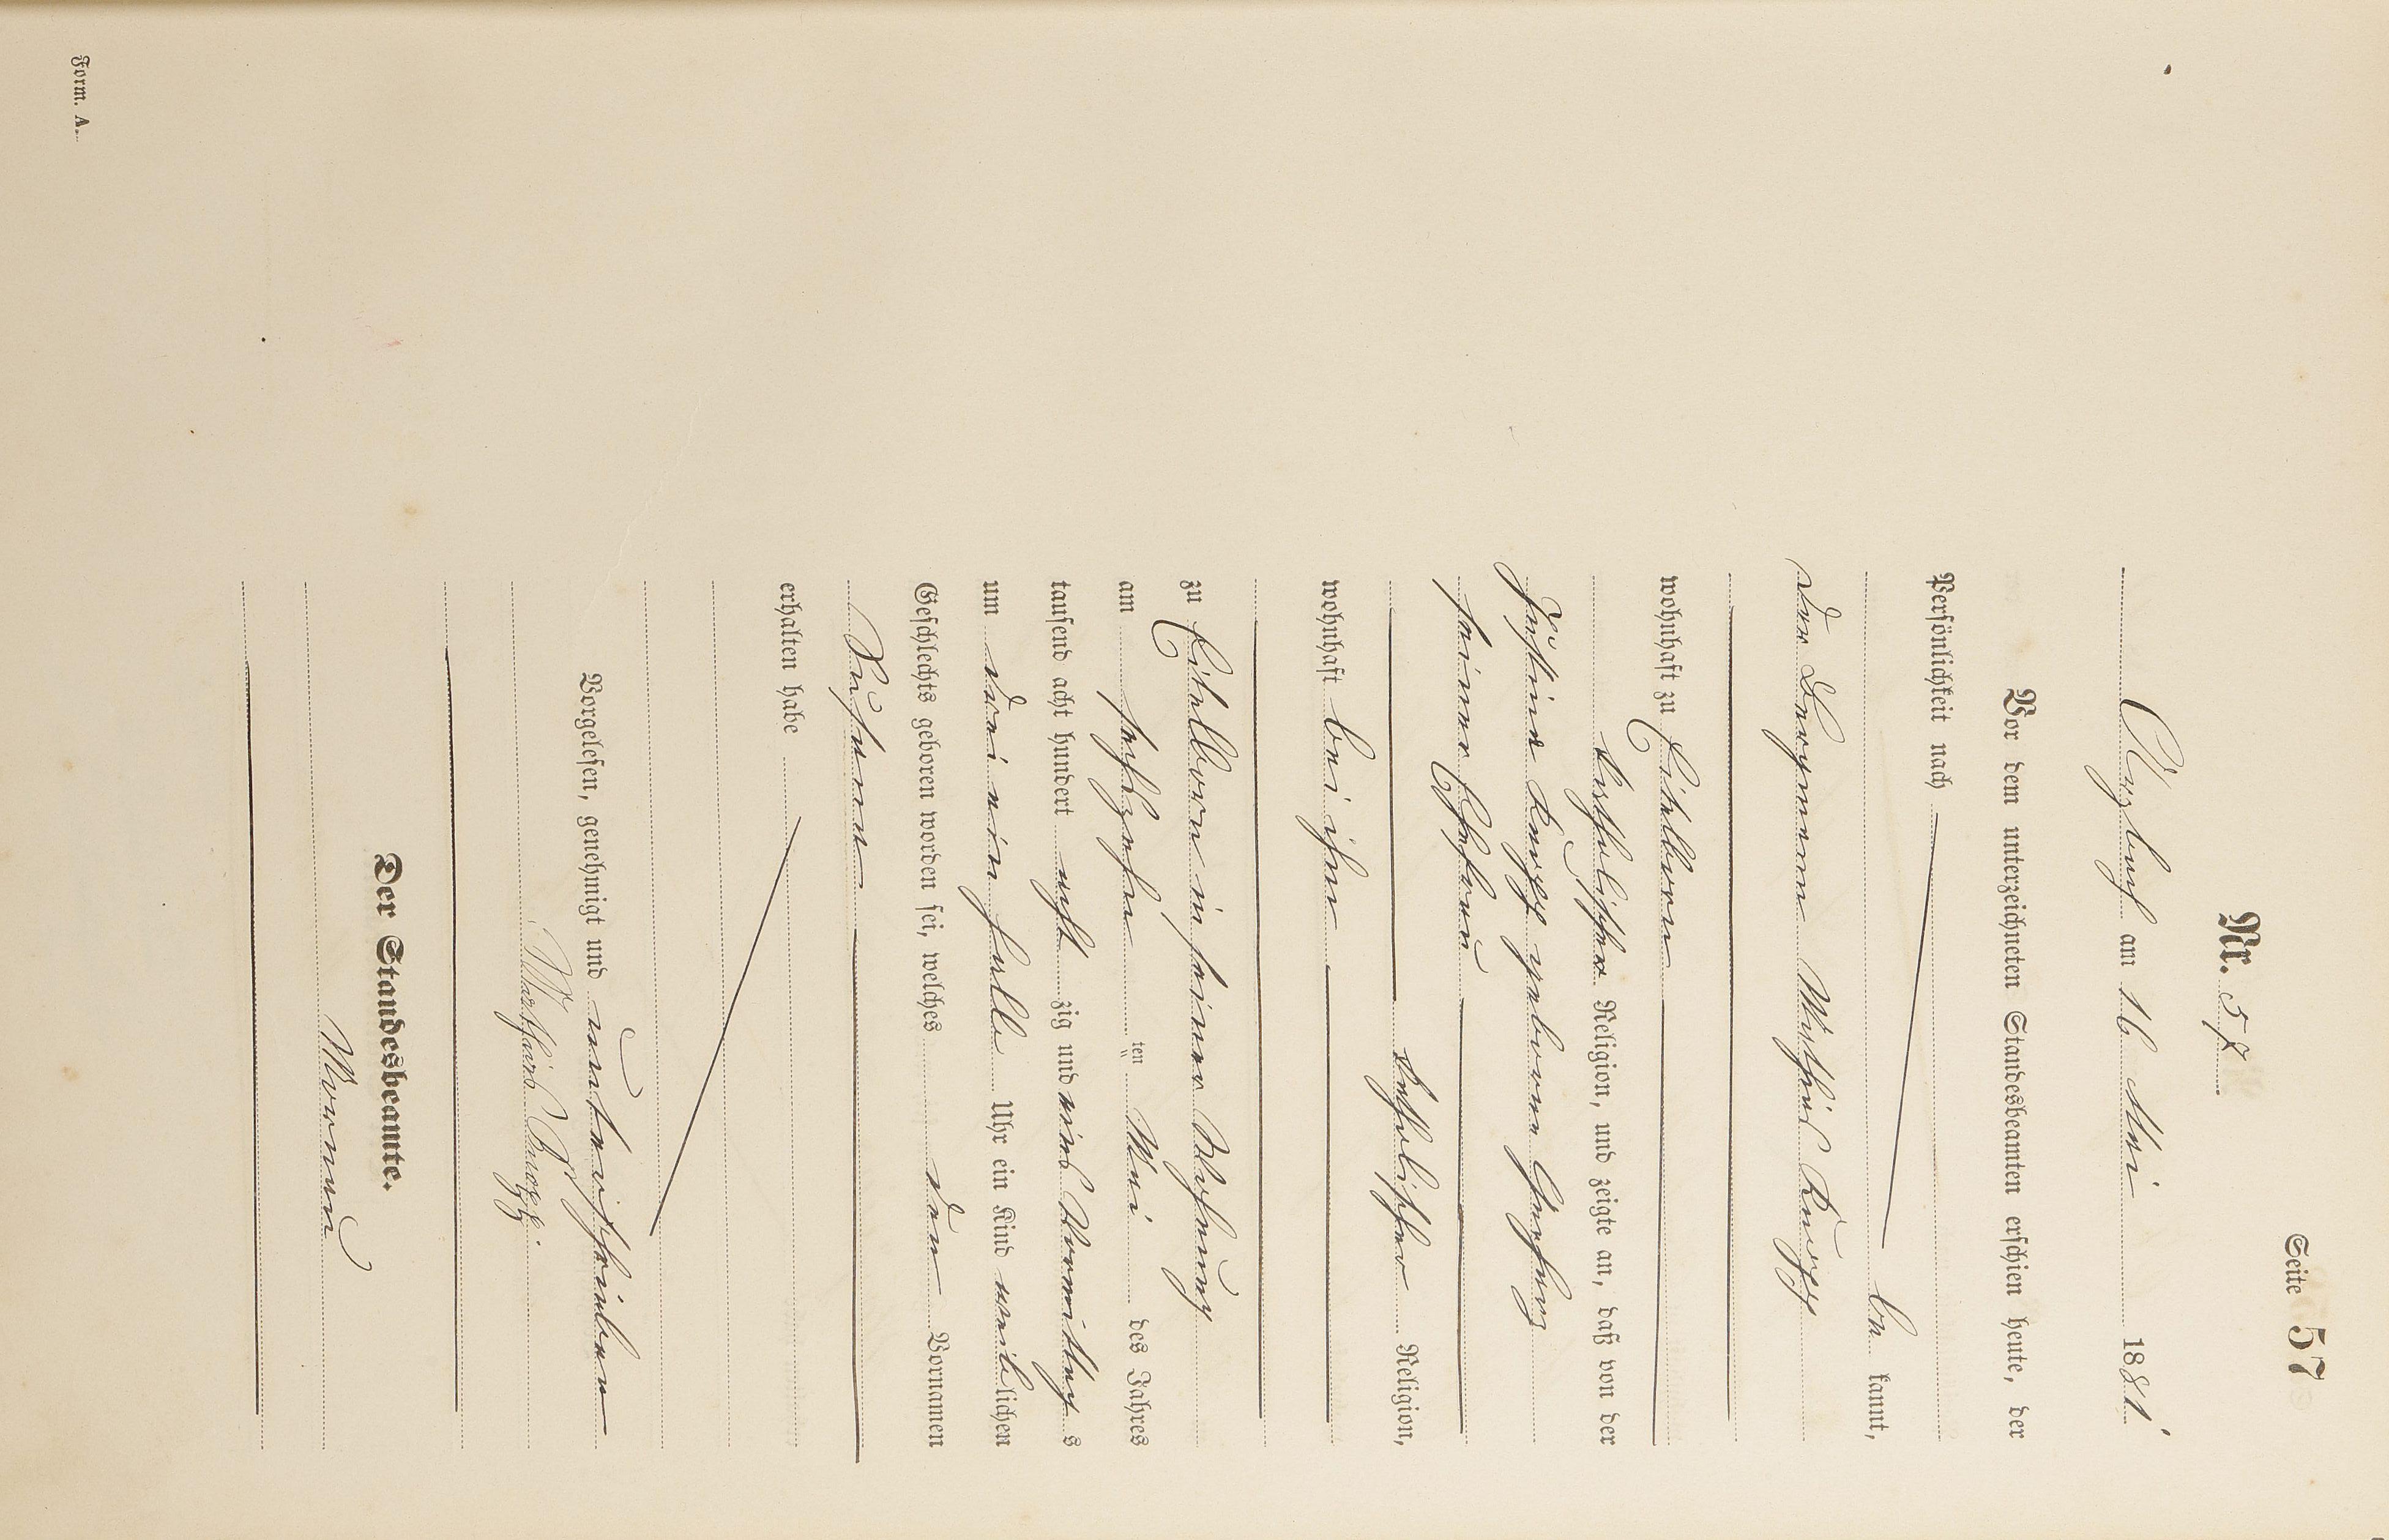 Seite 57
Nr. 57
Arzbach am 16 Mai 1881
Vor dem unterzeichneten Standesbeamten erschien heute, der
Persönlichkeit nach
be kannt,
der Bergmann Mathias Krupp
wohnhaft zu Eitelborn
katholischer Religion, und zeigte an, daß von der
Justina Krupp geborene Gerharz
seiner Ehefrau
katholischer Religion,
wohnhaft bei ihm
zu Eitelborn in seiner Wohnung
am sechszehn ten Mai des Jahres
tausend acht hundert acht zig und eins Vormittag s
um drei ein halb Uhr ein Kind weib lichen
Geschlechts geboren worden sei, welches den Vornamen
Susanna
erhalten habe
Vorgelesen, genehmigt und unterschrieben
Mathias Krupp.
Der Standesbeamte.
Form. A.